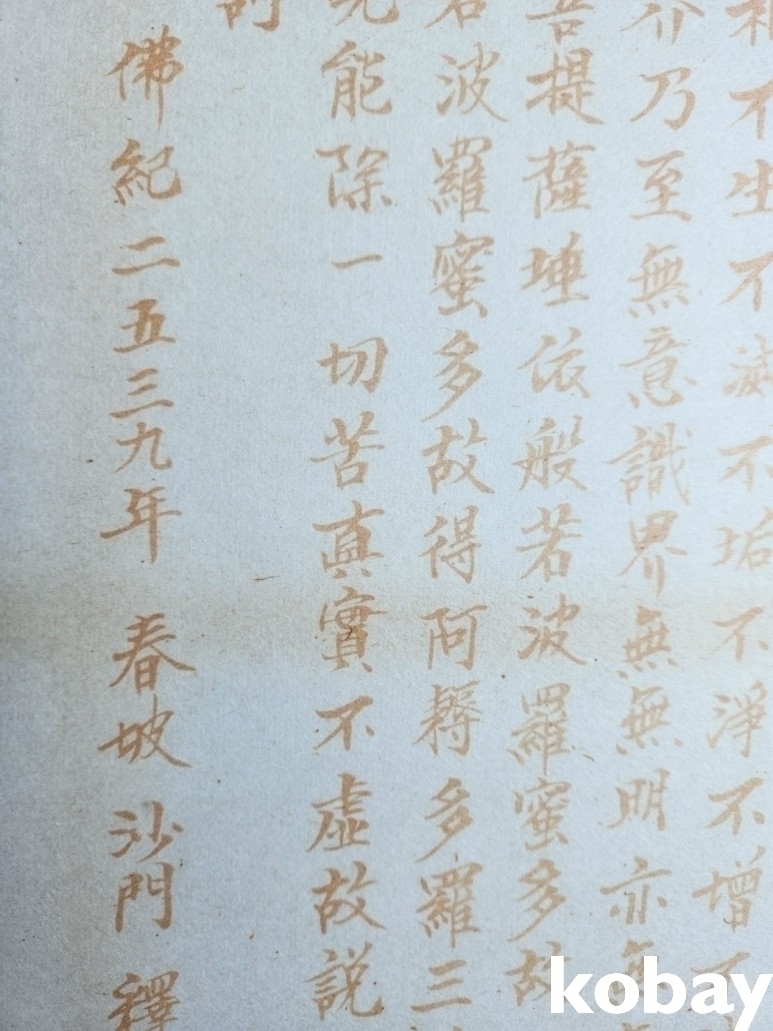 不生不滅不垢不淨不增不
界乃至無意識界無無明亦無
菩提薩埵依般若波羅蜜多故
若波羅蜜多故得阿耨多羅三
能除一切苦真實不虛故説
佛紀二五三九年 春坡沙門 釋
kobay